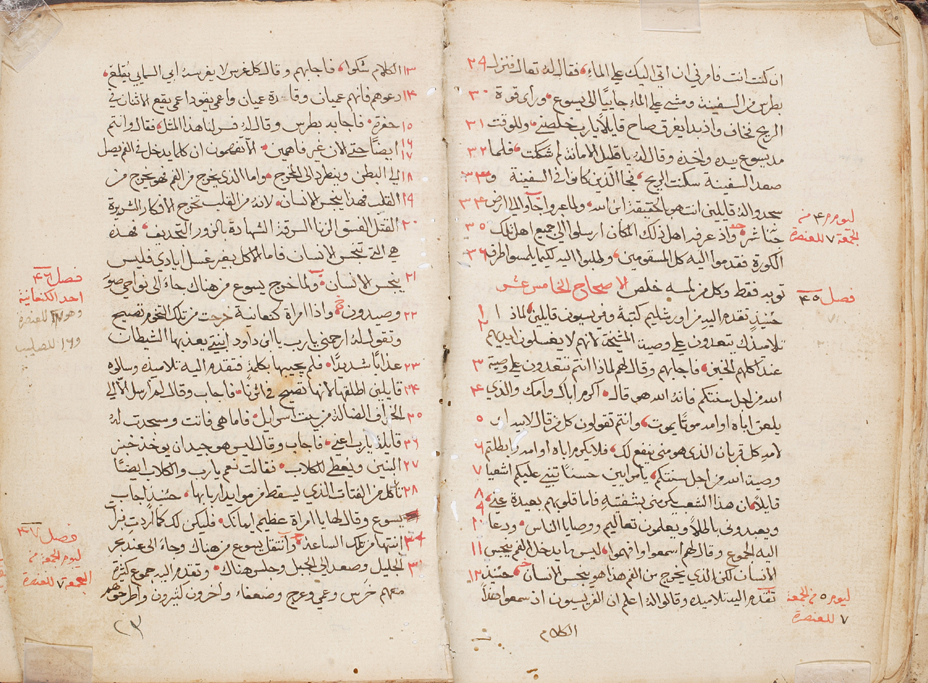 ان كنت انت فامرني ان اتي اليك علي الماء فقال له تعال فنزل ٢٩
بطرس من السفينة ومشي علي الماء جاييًا الي يسوع وراي قوة ٣٠
الريح فخاف واذ بدا يغرق صاح قايلا يارب خلصني وللوقت ٣١
مد يسوع يده واخذه وقال له يا قليل الامانه لم شككت فلما ٣٢
صعد السفينة سكنت الريح فجا الذين كانوا في السفينة و ٣٣
سجدوا له قايلين انت هو بالحقيقة ابن الله ولما عبروا جاوا الي ارض ٣٤
جناشر واذ عرفه اهل ذلك المكان ارسلوا الي جميع اهل تلك ٣٥
الكورة فقدموا اليه كل المسقومين وطلبوا اليه كيما يلمسوا طرف ٣٦
ثوبه فقط وكل من لمسه خلص الاصحاح الخامس عشر
حينيذ تقدم اليه من اورشليم كتبة وفريسيون قايلين لماذا ١
تلاميذك يتعدون علي وصية المشيخة لانهم لا يغسلون ايديهم ٢
عند اكلهم الخبز فاجابهم وقال لهم لماذا انتم تتعدون علي وصية ٣
الله من اجل سنتكم فانه الله هو قال اكرم اباك وامك والذي ٤
يلعن اباه او امه موتًا يموت وانتم تقولون كل من قال لابيه او ٥
لامه كل قربان الذي هو مني ينفع لك فلا يكرم اباه او امه وابطلتم ٦
وصية الله من اجل سنتكم يا مراييين حسنًا تنبي عليكم اشعيا ٧
قايلا ان هذا الشعب يكرمني بشفتيه فاما قلبهم بعيدة عني ٨
ويعبدوني باطلا ويعلمون تعاليم ووصايا الناس ودعا ١٠
اليه الجموع وقال لهم اسمعوا وافهموا ليس ما يدخل الفم ينجس ١١
الانسان لكن الذي يخرج من الفم هذا هو ينجس الانسان حينيذ ١٢
تقدم اليه تلاميذه وقالوا له اعلم ان الفريسيون اذ سمعوا هذا
الكلام
ليوم ٤ من
الجمعة ٧ للعنصرة
فصل ٤٥
ليوم ٥ من الجمعة
٧ للعنصرة
١٣ الكلام شكوا فاجابهم وقال كل غرس لا يغرسه ابي السمايي يُقلع
١٤ دعوهم فانهم عميان وقادة عميان واعمي يقود اعمي يقع الاثنان في
١٥ حفرة فاجابه بطرس وقال له فسر لنا هذا المثل فقال وانتم
١٦ ايضًا حتي الان غير فاهمين الا تفهمون ان كلما يدخل في الفم يصل
١٧
١٨ الي البطن وينطرد الي المخرج واما الذي يخرج من الفم فهو يخرج من
١٩ القلب فهذا ينجس الانسان لانه من القلب تخرج الافكار الشريرة
٢٠ القتل الفسق الزنا السرقة الشهادة بالزور التجديف فهذه
هي التي تنجس الانسان فاما الاكل بغير غسل ايادي فليس
٢١ ينجس الانسان ولما خرج يسوع من هناك جاء الي نواحي صور
٢٢ وصيدون واذا امراة كنعانية خرجت من تلك التخوم تصيح
وتقول له ارحمني يارب يا ابن داود ابنتي يعذبها الشيطان
٢٣ عذابًا شديدًا فلم يجبها بكلمة فتقدم اليه تلاميذه وسالوه
٢٤ قايلين اطلقها لانها تصيح في اثرنا فاجاب وقال لم ارسل الا الي
٢٥ الخراف الضالة من بيت اسراييل فاما هي فاتت وسجدت له
٢٦ قايلة يارب اعني فاجاب وقال ليس هو جيد ان يوخذ خبز
٢٧ البنين ويعطي للكلاب فقالت نعم يارب والكلاب ايضًا
٢٨ تاكل من الفتات الذي يسقط من موايد اربابها حينيذ اجاب
يسوع وقال لها يا امراة عظيم امانتك فليكن لك كما اردت فبرات
ابنتها من تلك الساعة وانتقل يسوع من هناك وجاء الي عند بحر
٣١ الجليل وصعد الي الجبل وجلس هناك وتقدم اليه جموع كثيرة
معهم خرس وعمي وعرج وضعفاء واخرون كثيرون واطرحوهم
فصل ٤٦
احد الكنعانية
وهو ١٧ للعنصرة
و١٦ للصليب
فصل ٤٧
ليوم الجمعة من
الجمعة ٧ للعنصرة
٢٣